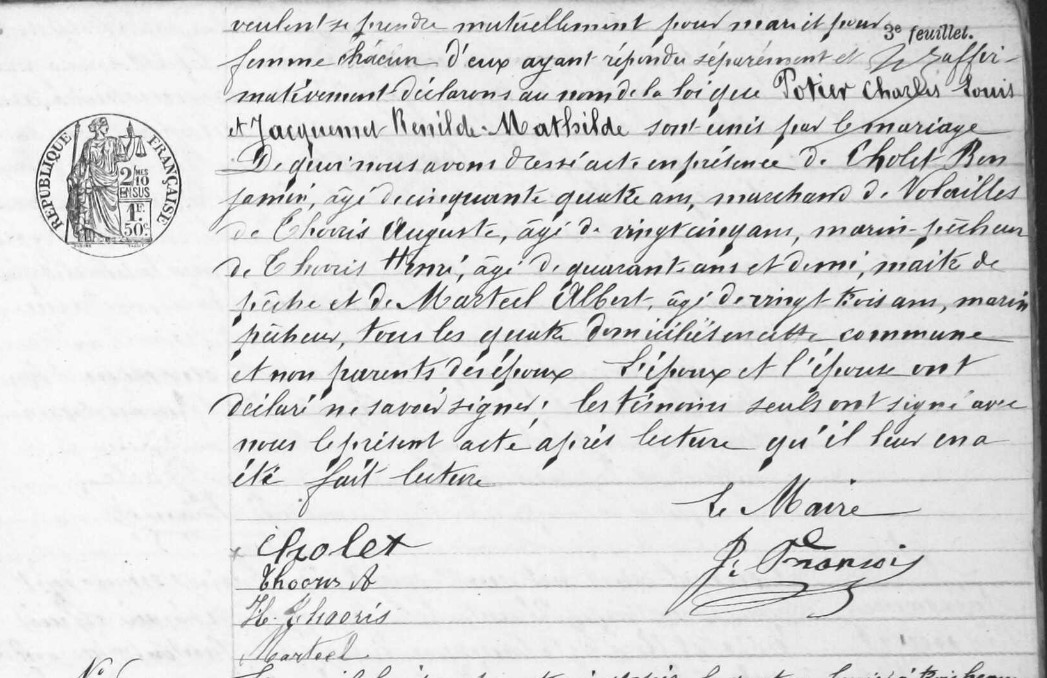 veulent se prendre mutuellement pour mari et pour
3e feuillet.
femme chacun d'eux ayant répondu séparément et affir-
mativement déclarons au nom de la loi que Potier Charles Louis
et Jacquemet Renilde Mathilde sont unis par le mariage
De quoi nous avons dressé acte en présence de Cholet Ben
jamin, âgé de cinquante quatre ans, marchand de Volailles
de Thooris Auguste, âgé de vingt cinq ans, marin-pêcheur
de Thooris Henri, âgé de quarante ans et demi, maître de
pêche et de Marteel Albert, âgé de vingt trois ans, marin
pêcheur, tous les quatre domiciliés en cette commune
et non parents des époux L'époux et l'épouse ont
déclaré ne savoir signer; les témoins seuls ont signé avec
nous le présent acte après lecture qu'il leur en a
été fait lecture
RÉPUBLIQUE FRANÇAISE
2/10
EN SUS
1F
50c
Le Maire
Cholet
P. François
Thooris A
H. Thooris
Marteel